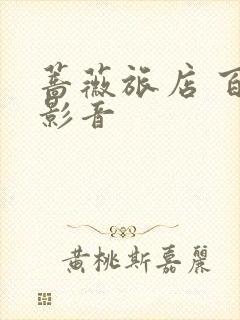 蔷薇旅店 百
影音
黄桃斯嘉丽